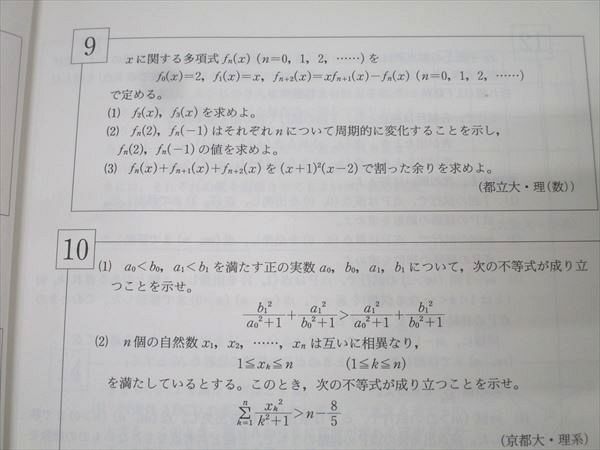 9
xに関する多項式 fₙ(x) (n=0, 1, 2, ……) を
f₀(x)=2, f₁(x)=x, fₙ₊₂(x)=xfₙ₊₁(x)−fₙ(x) (n=0, 1, 2, ……)
で定める。
(1) f₂(x), f₃(x) を求めよ。
(2) fₙ(2), fₙ(−1) はそれぞれ n について周期的に変化することを示し,
fₙ(2), fₙ(−1) の値を求めよ。
(3) fₙ(x)+fₙ₊₁(x)+fₙ₊₂(x) を (x+1)²(x−2) で割った余りを求めよ。
(都立大・理(数))
10
(1) a₀<b₀, a₁<b₁ を満たす正の実数 a₀, b₀, a₁, b₁ について, 次の不等式が成り立
つことを示せ。
b₁²/(a₀²+1) + a₁²/(b₀²+1) > a₁²/(a₀²+1) + b₁²/(b₀²+1)
(2) n個の自然数 x₁, x₂, ……, xₙ は互いに相異なり,
1≦xₖ≦n (1≦k≦n)
を満たしているとする。このとき, 次の不等式が成り立つことを示せ。
Σ[k=1, n] xₖ²/(k²+1) > n − 8/5
(京都大・理系)